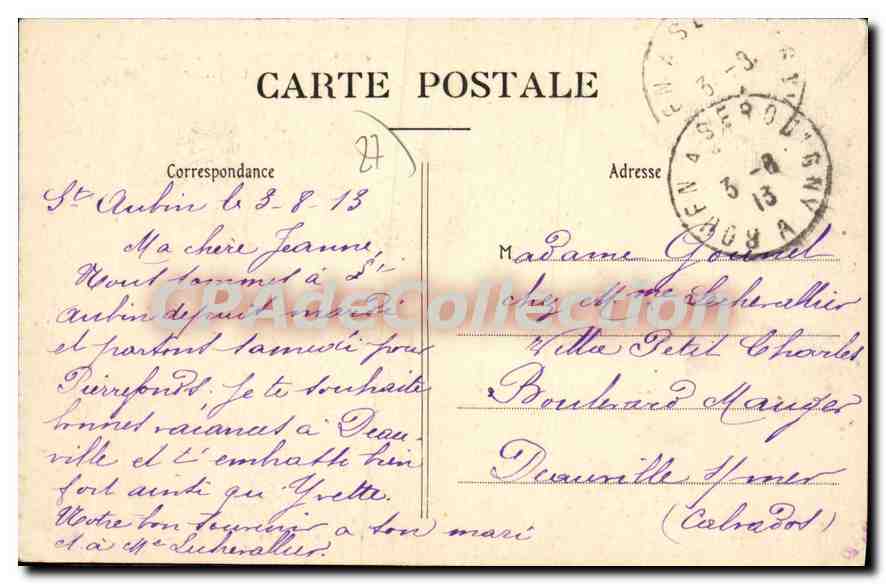 CARTE POSTALE
27
Correspondance
St Aubin le 3-8-13
Ma chère Jeanne,
Nous sommes à St
Aubin depuis mardi
et partons samedi pour
Pierrefonds. Je te souhaite
bonnes vacances à Deau-
ville et t'embrasse bien
fort ainsi qu'Yvette.
Notre bon souvenir à ton mari
et à Me Luhervallier.
Adresse
Madame Gounet
chez Mme Luhervallier
Villa Petit Charles
Boulevard Mauger
Deauville s/mer
(Calvados)
3-8
3-8
13
CPAdeCollection